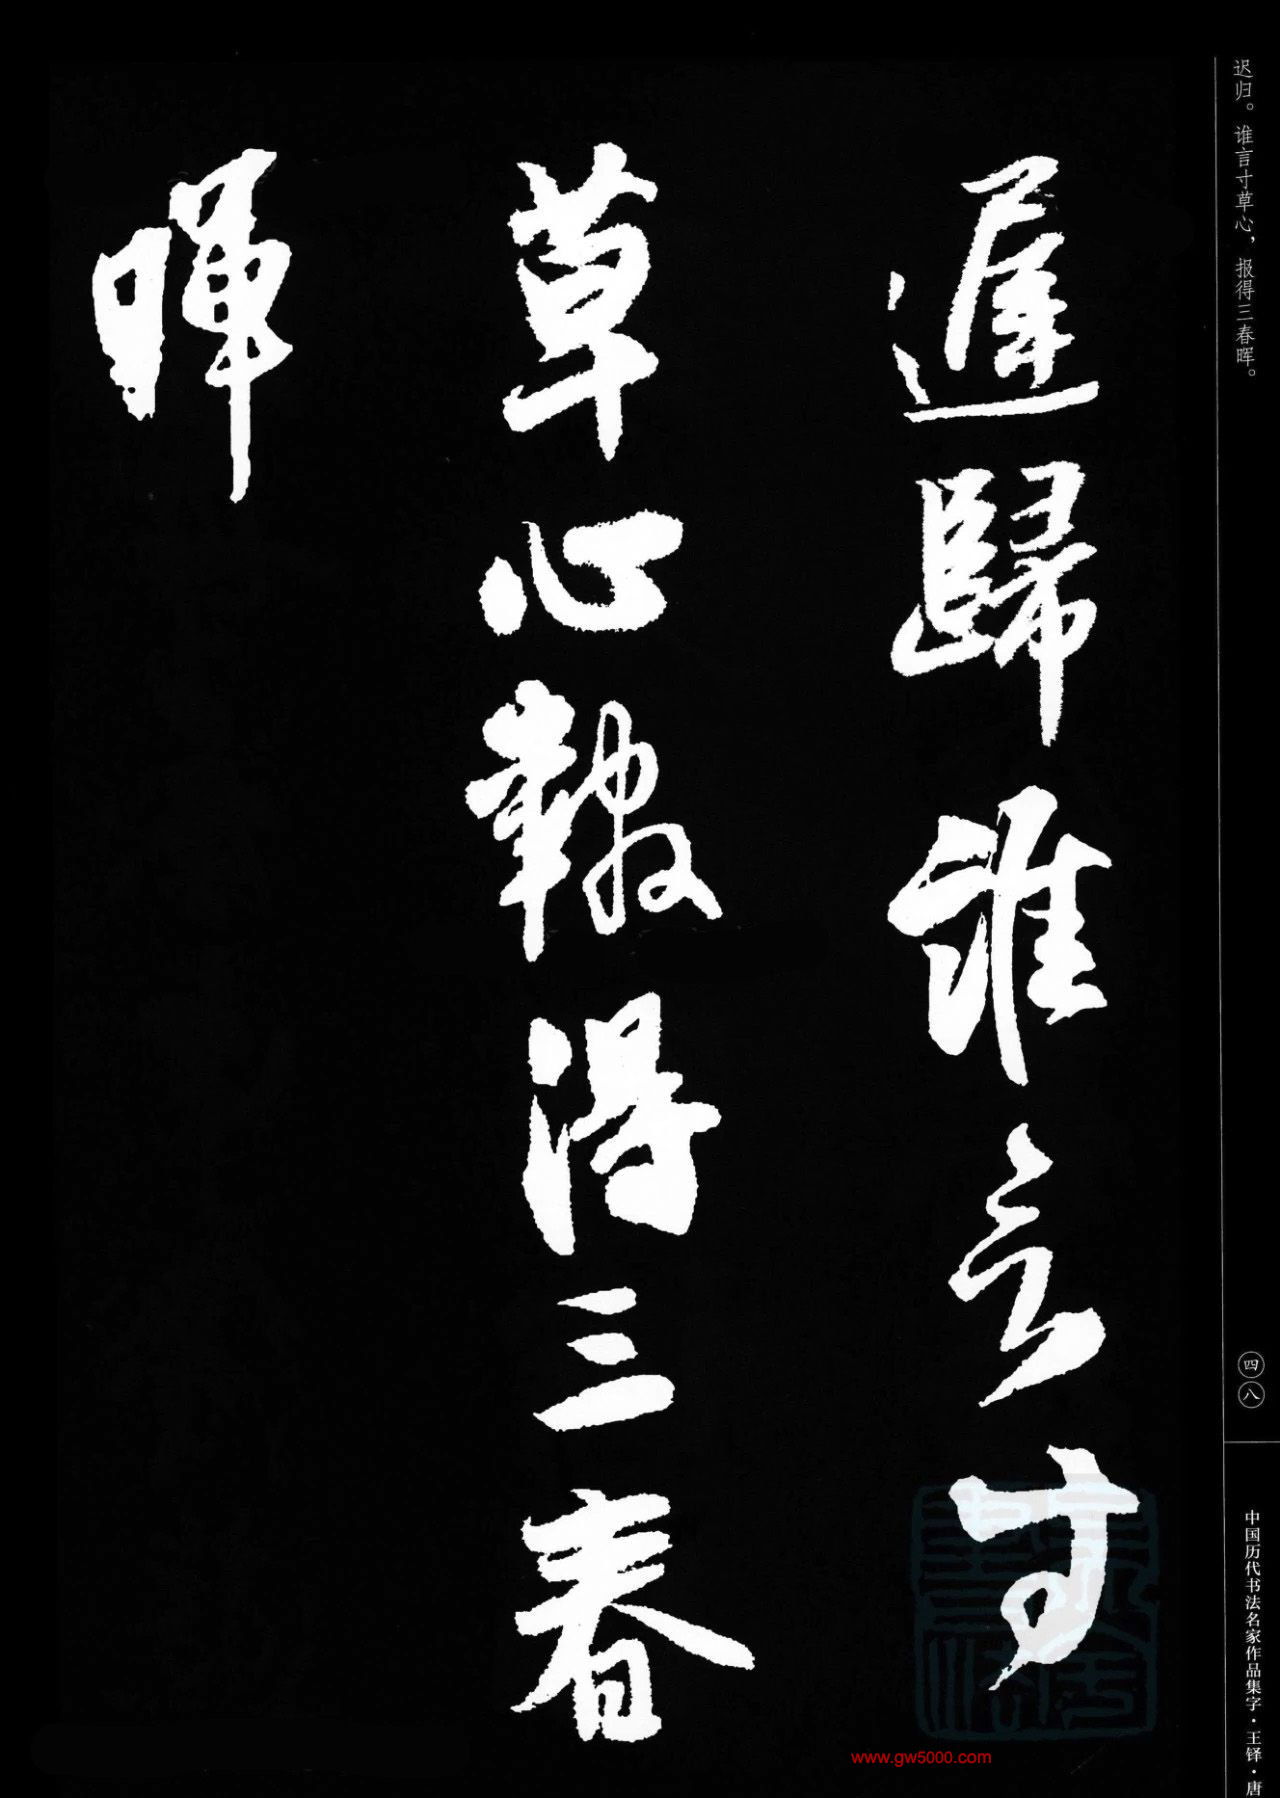 迟归。谁言寸草心，报得三春晖。
遲歸誰言寸
草心報得三春
暉
四八
中国历代书法名家作品集字·王铎·唐
www.gw5000.com